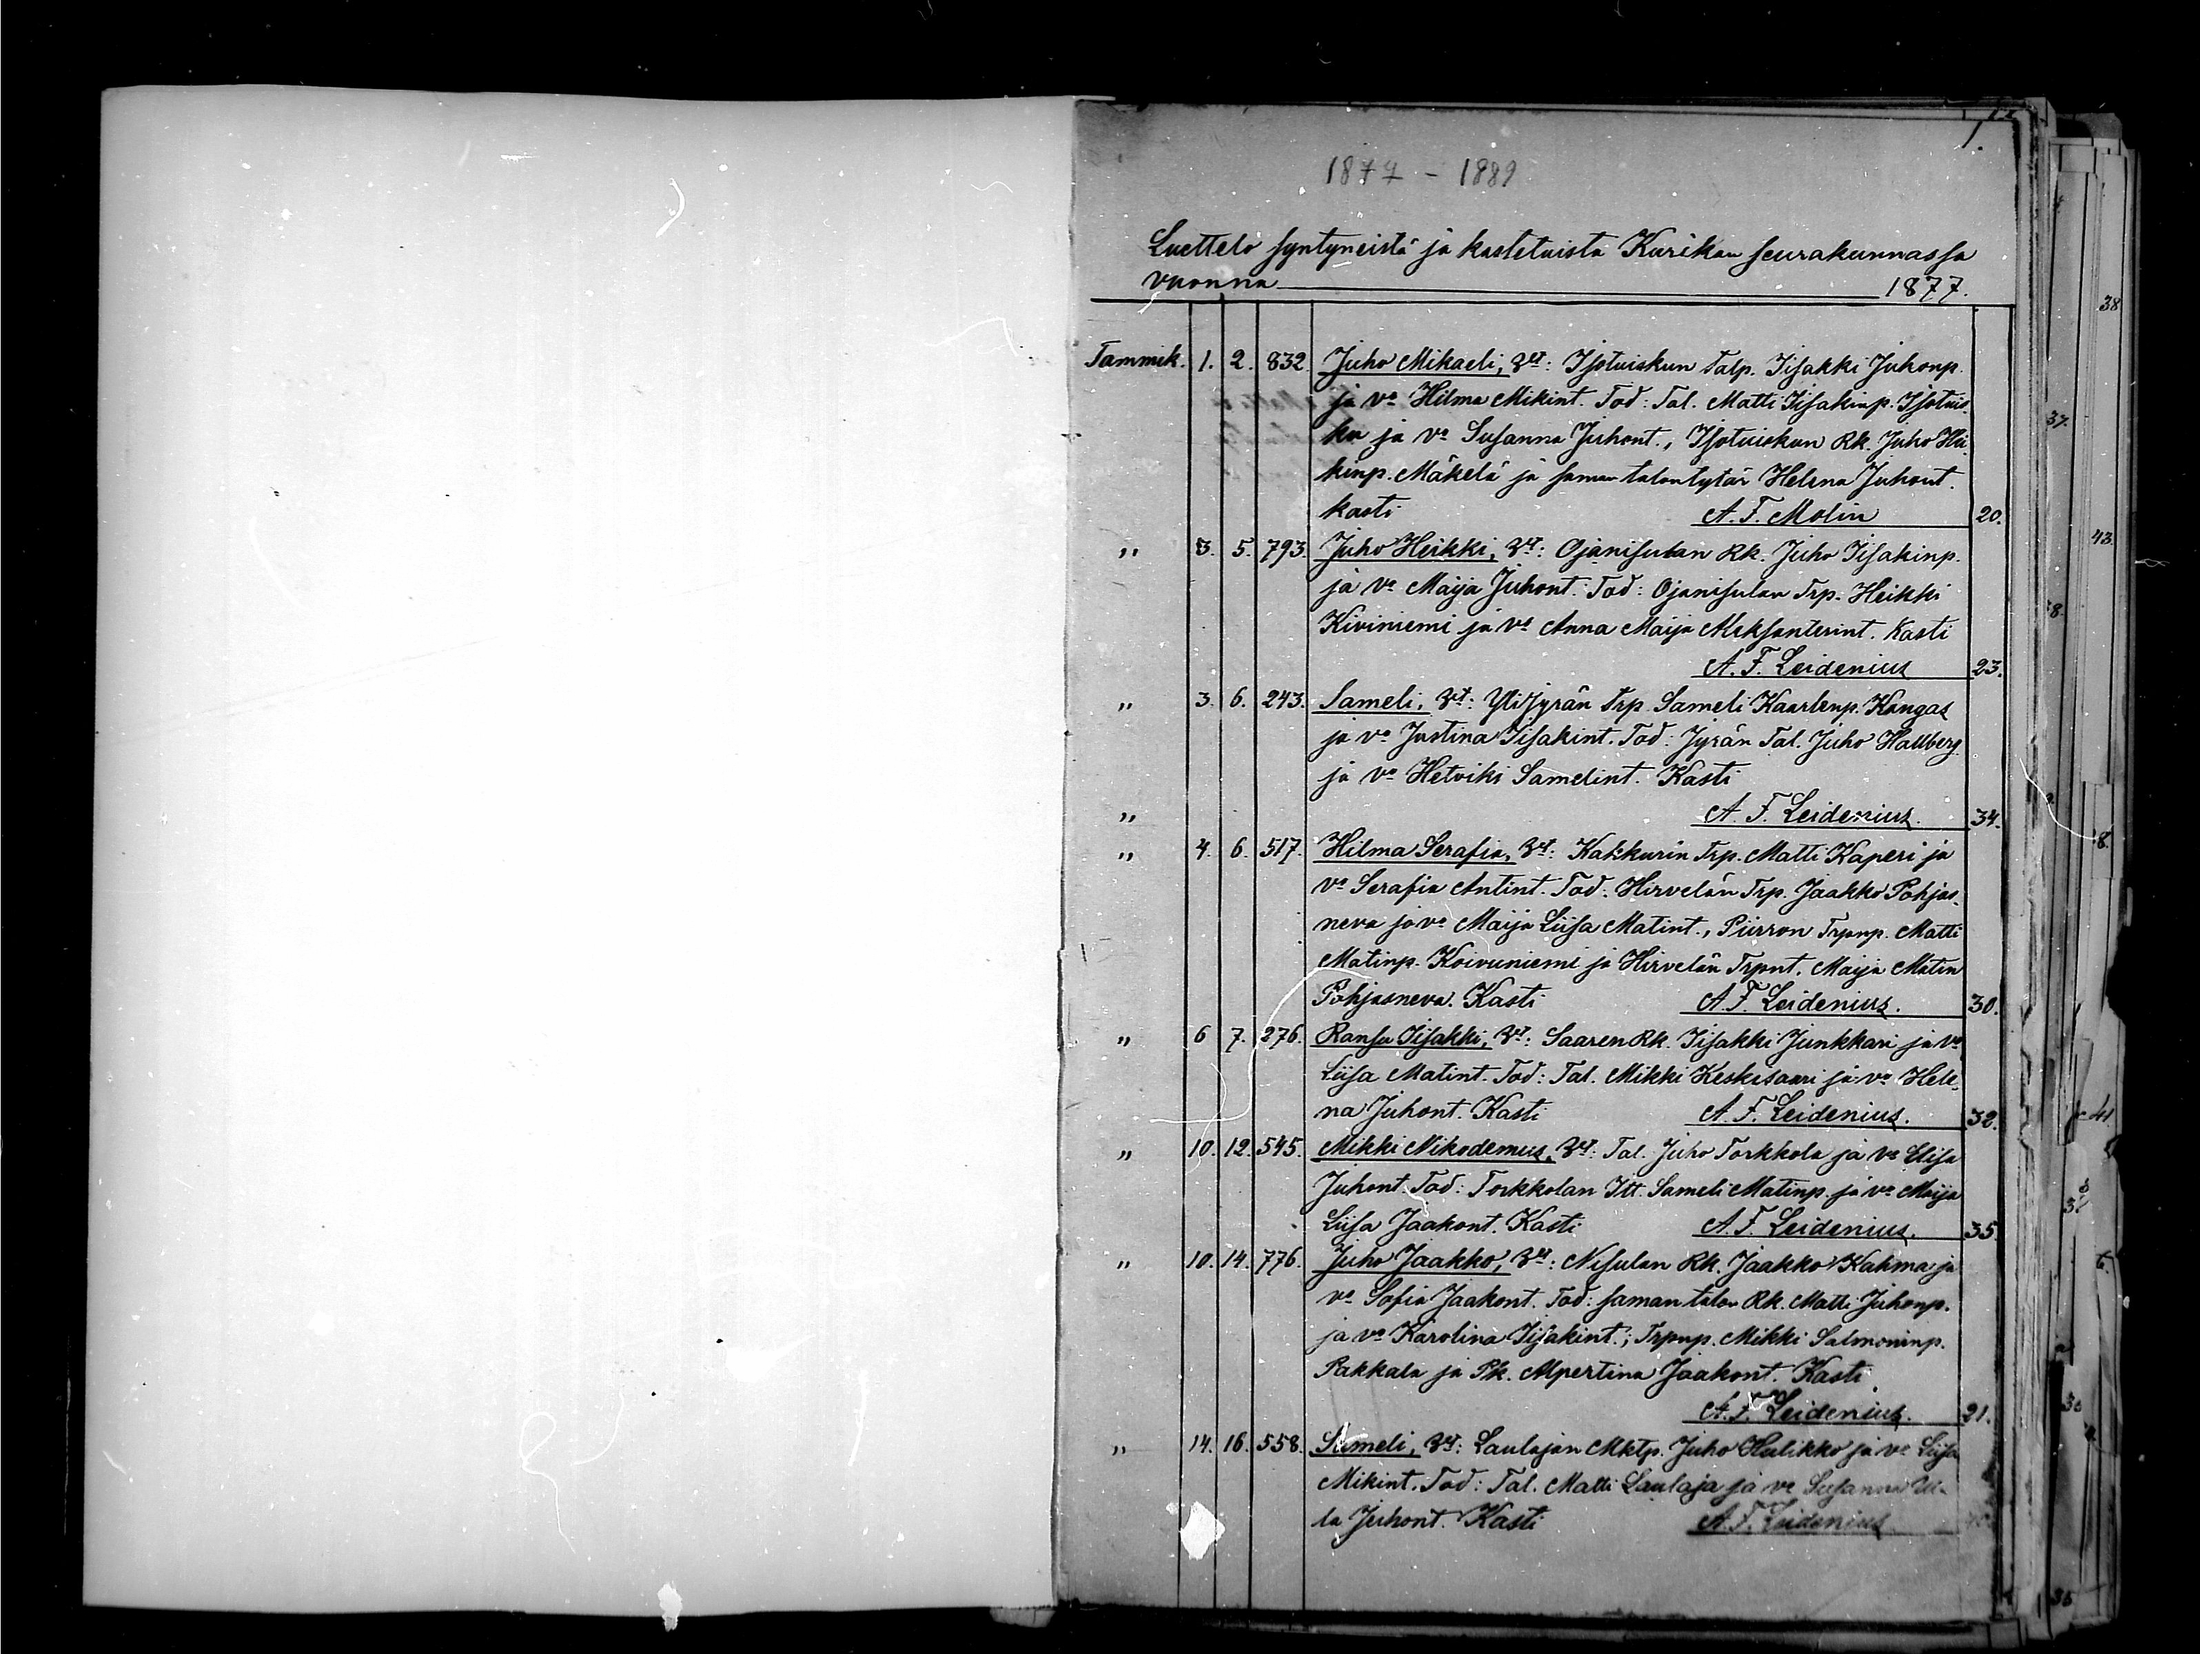 1.
1877 - 1889
Luettelo syntyneistä ja kastetuista Kurikan seurakunnassa
vuonna 1877.
Tammik. 1. 2. 832 Juho Mikaeli, Vt: Isotuiskun Talp. Iisakki Juhonp.
ja vo Hilma Mikint. Tod: Tal. Matti Iisakinp. Isotuis-
ku ja vo Susanna Juhont., Isotuiskun Rk. Juho Hei-
kinp. Mäkelä ja saman talon tytär Helena Juhont.
kasti A. F. Molin 20.
" 3. 5. 793. Juho Heikki, Vt: Ojanisulan Rk. Juho Iisakinp.
ja vo Maija Juhont. Tod: Ojanisulan Trp. Heikki
Kiviniemi ja vo Anna Maija Aleksanterint. Kasti
A. F. Leidenius 23.
" 3. 6. 243. Sameli, Vt: YliJyrän Trp. Sameli Kaarlenp. Kangas
ja vo Justina Iisakint. Tod: Jyrän Tal. Juho Hallberg
ja vo Hetviki Samelint. Kasti
" A. F. Leidenius. 34.
" 4. 6. 517. Hilma Serafia, Vt: Kakkurin Trp. Matti Kaperi ja
vo Serafia Antint. Tod: Hirvelän Trp. Jaakko Pohjas-
neva ja vo Maija Liisa Matint., Piirron Trpnp. Matti
Matinp. Koivuniemi ja Hirvelän Trpnt. Maija Matin
Pohjasneva. Kasti A. F. Leidenius. 30.
" 6 7. 276. Ransu Iisakki, Vt: Saaren Rk. Iisakki Junkkari ja vo
Liisa Matint. Tod: Tal. Mikki Keskisaari ja vo Hele-
na Juhont. Kasti A. F. Leidenius. 32.
" 10. 12. 545. Mikki Nikodemus, Vt: Tal. Juho Torkkola ja vo Elisa
Juhont. Tod: Torkkolan Itt. Sameli Matinp. ja vo Maija
Liisa Jaakont. Kasti A. F. Leidenius. 35.
" 10. 14. 776. Juho Jaakko, Vt: Nisulan Rk. Jaakko Kahma ja
vo Sofia Jaakont. Tod: saman talon Rk. Matti Juhonp.
ja vo Karolina Iisakint.; Trpnp. Mikki Salmoninp.
Pakkala ja Pk. Alpertina Jaakont. Kasti
A. F. Leidenius. 21.
" 14. 16. 558. Sameli, Vt: Laulajan Mktp. Juho Hulikko ja vo Liisa
Mikint. Tod: Tal. Matti Laulaja ja vo Susanna Ul-
la Juhont. Kasti A. F. Leidenius